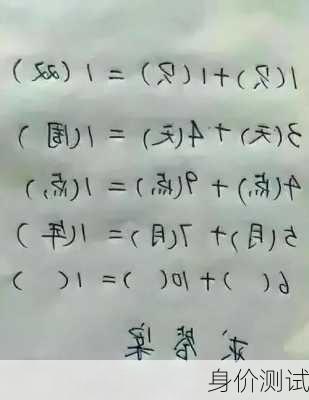 1(只)+1(只) = 1(双)
3(天)+4(天) = 1(周)
4(点)+9(点) = 1(点)
5(月)+7(月) = 1(年)
6( )+10( ) = 1( )
求答案
身价测试